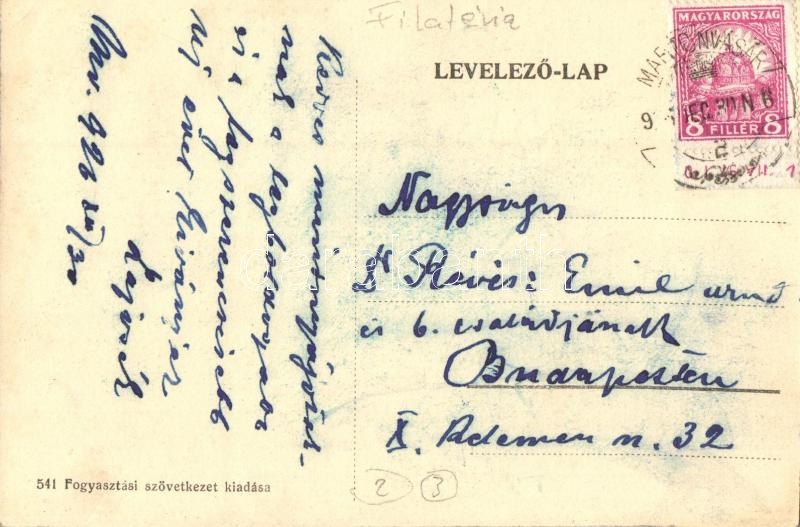 Filatéria
LEVELEZŐ-LAP
MAGYARORSZÁG
8 FILLÉR 8
MARTONVÁSÁR
9 DEC 30 N 6
Kedves mindnyájatok-
nak a legboldogabb
és a legszerencsésebb
új évet kívánjuk
Mv. 926 XII/30
Lajosék
Nagyságos
Dr Révész Emil urnak
és b. családjának
Budapesten
X. Ademen n. 32
541 Fogyasztási szövetkezet kiadása
2
3